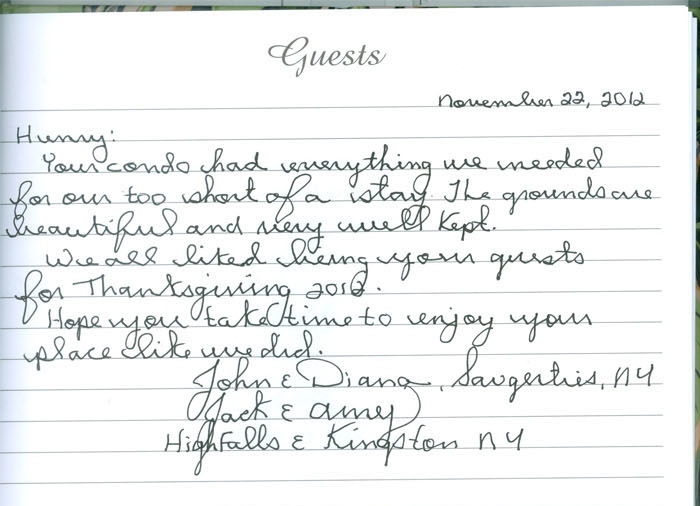 Guests
November 22, 2012
Hunny:
Your condo had everything we needed
for our too short of a stay. The grounds are
beautiful and very well kept.
We all liked being your guests
for Thanksgiving 2012.
Hope you take time to enjoy your
place like we did.
John & Diana, Saugerties, NY
Jack & Amy
High Falls & Kingston NY